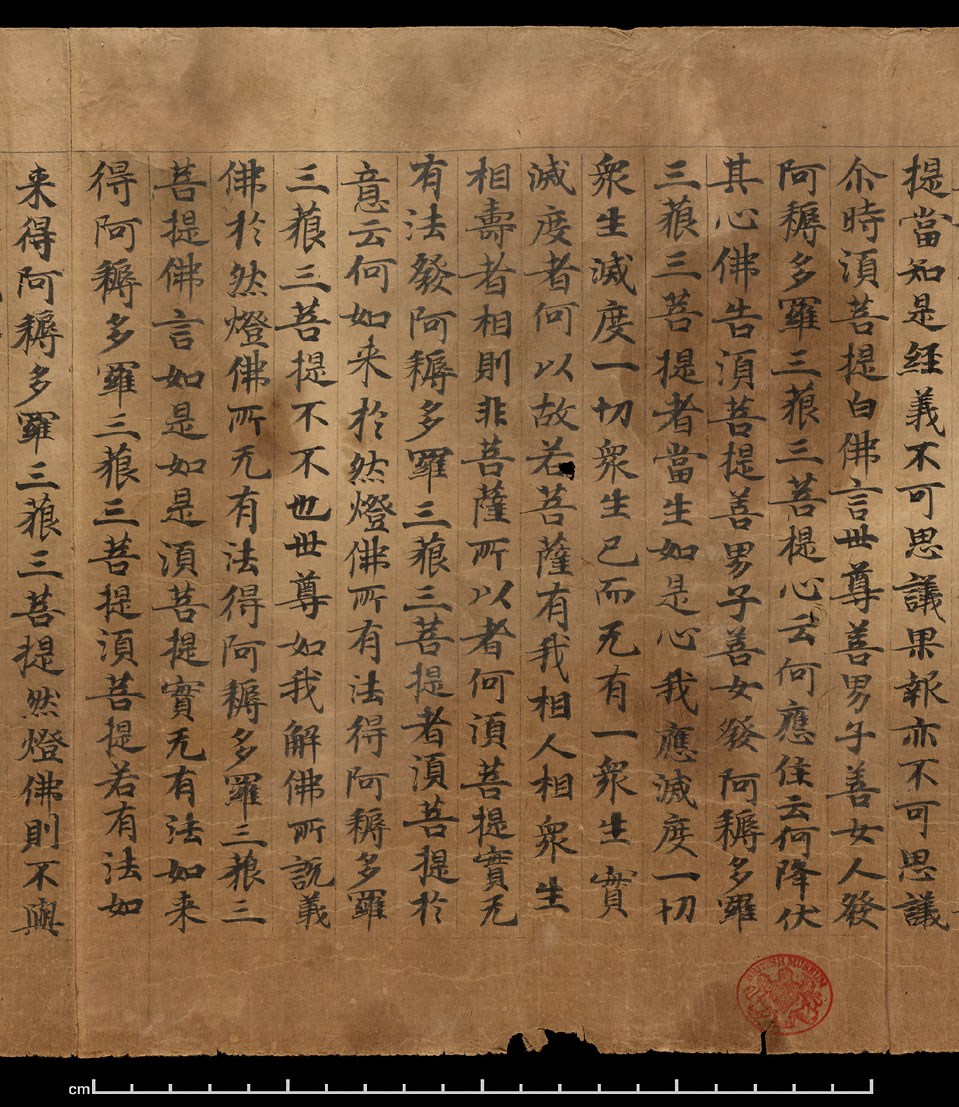 提當知是經義不可思議果報亦不可思議
尒時湏菩提白佛言世尊善男子善女人發
阿耨多羅三藐三菩提心云何應住云何降伏
其心佛告湏菩提善男子善女發阿耨多羅
三藐三菩提者當生如是心我應滅度一切
衆生滅度一切衆生已而无有一衆生實
滅度者何以故若菩薩有我相人相衆生
相壽者相則非菩薩所以者何湏菩提實无
有法發阿耨多羅三藐三菩提者湏菩提於
意云何如来於然燈佛所有法得阿耨多羅
三藐三菩提不不也世尊如我解佛所說義
佛於然燈佛所无有法得阿耨多羅三藐三
菩提佛言如是如是湏菩提實无有法如来
得阿耨多羅三藐三菩提湏菩提若有法如
来得阿耨多羅三藐三菩提然燈佛則不與
BRITISH MUSEUM
cm